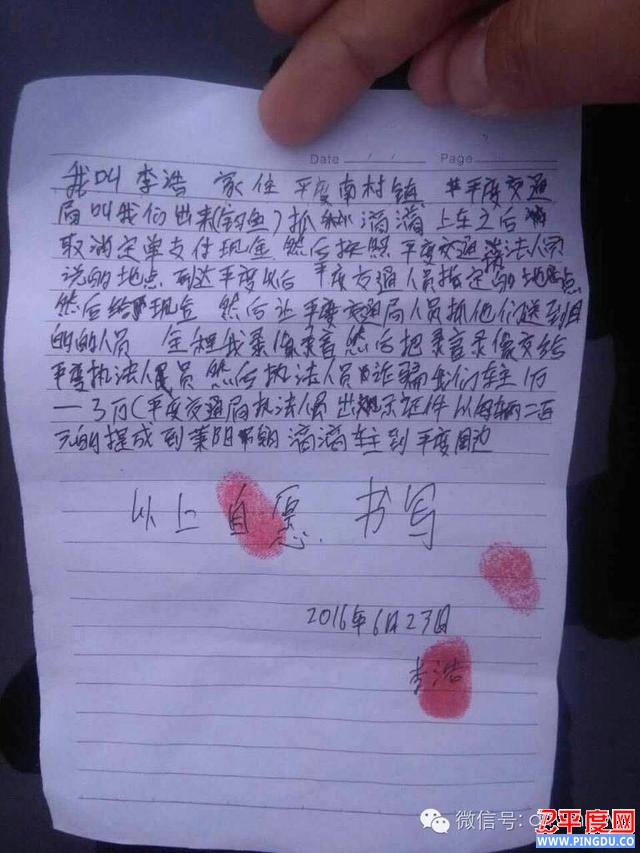 Date / / Page
我叫李浩 家住 平度南村镇 平度交通
局叫我们出来(钓鱼)抓 滴滴 上车之后
取消定单支付现金 然后按照 平度交通 执法人员
说的地点 到达平度以后 平度交通人员指定的地点
然后给 现金 然后让平度交通局人员抓他们送到目
的的人员 全程我录像录音 然后把录音录像交给
平度执法人员 然后执法人员 诈骗我们车主1万
一3万(平度交通局执法人员 出示证件 以每辆二百
元的提成到莱阳 钩 滴滴车主到平度周边
以上自愿 书写
2016年6月23日
李浩
微信号:
平度网
WWW.PINGDU.CC